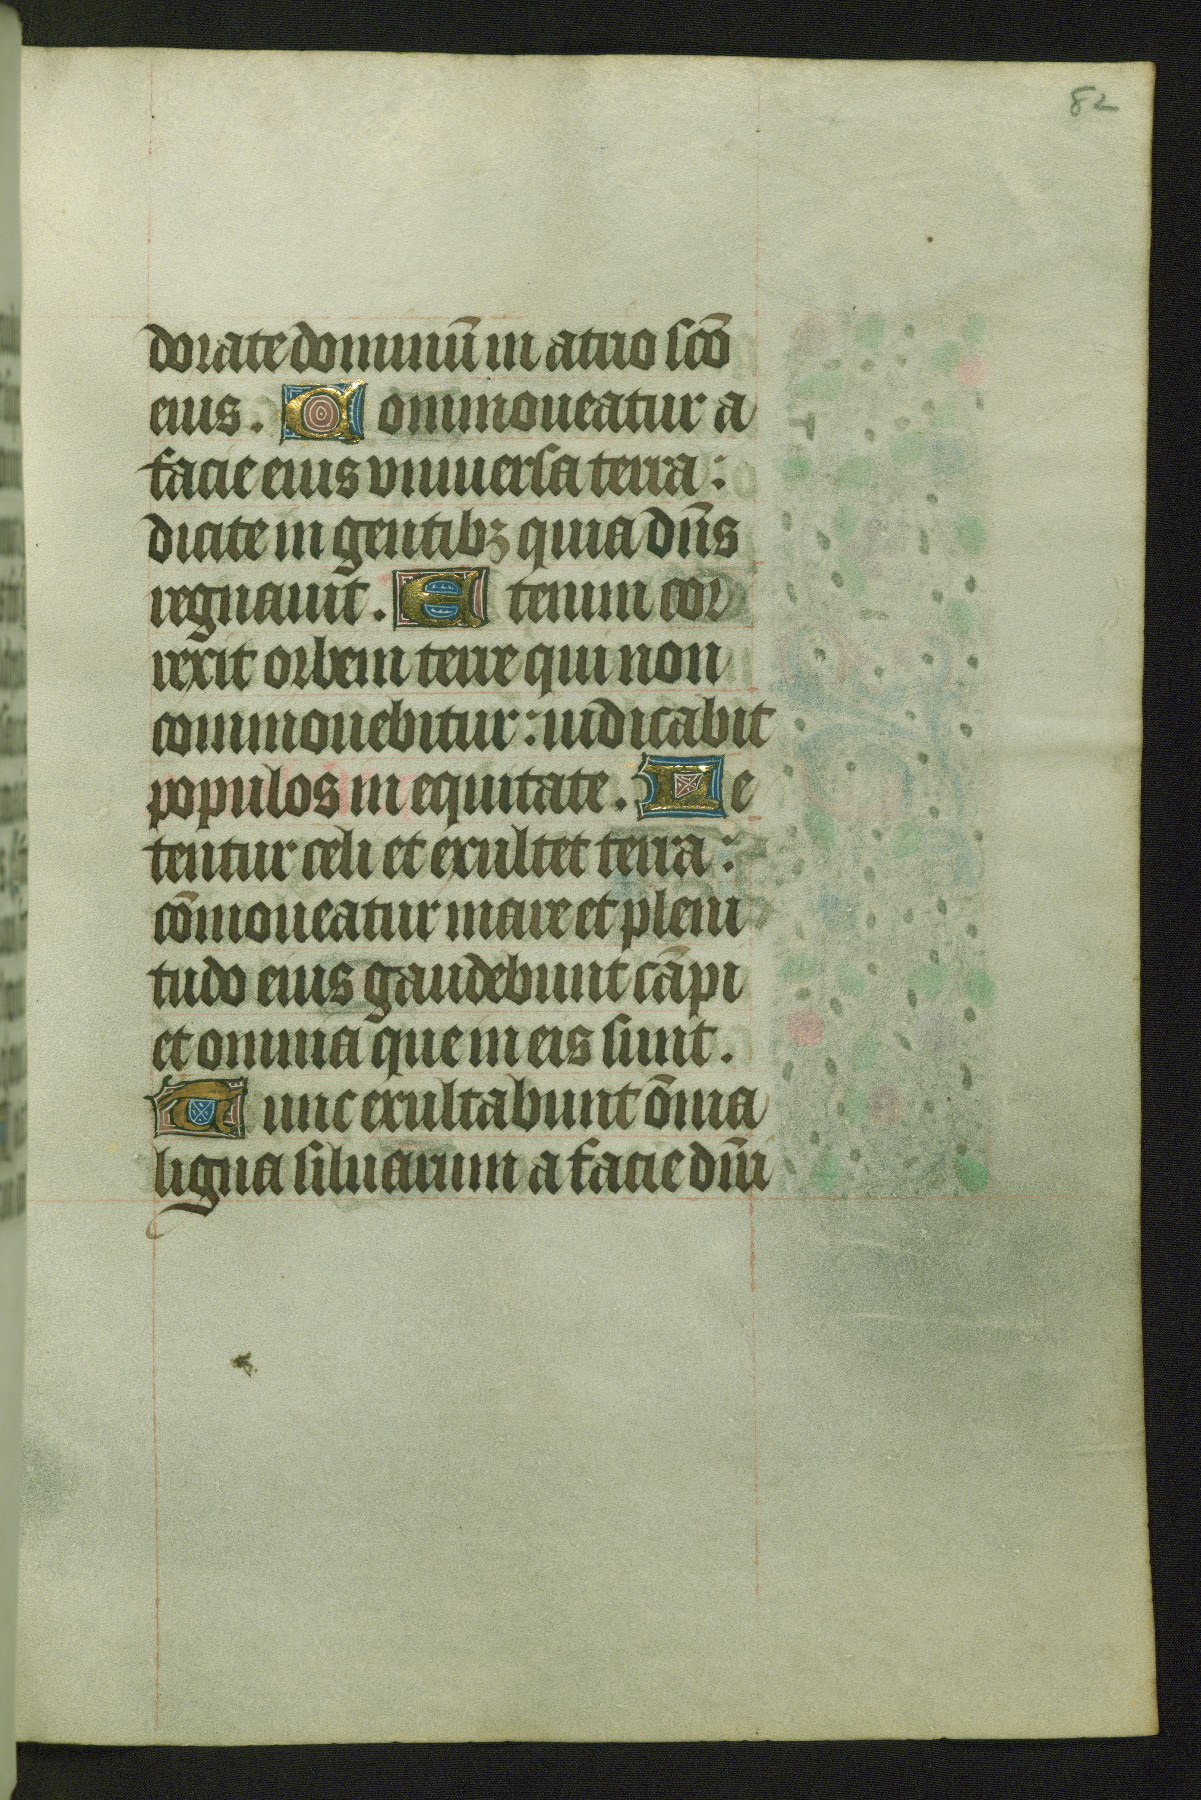 82
dorate dominū in atrio scō
eius. Commoueatur a
facie eius vniuersa terra:
dicite in gentibꝫ quia dn̄s
regnauit. Etenim cor
rexit orbem terre qui non
commouebitur: iudicabit
populos in equitate. Le
tentur celi et exultet terra:
cōmoueatur mare et pleni
tudo eius gaudebunt cāpi
et omnia que in eis sunt.
Tunc exultabunt ōnia
ligna siluarum a facie dn̄i